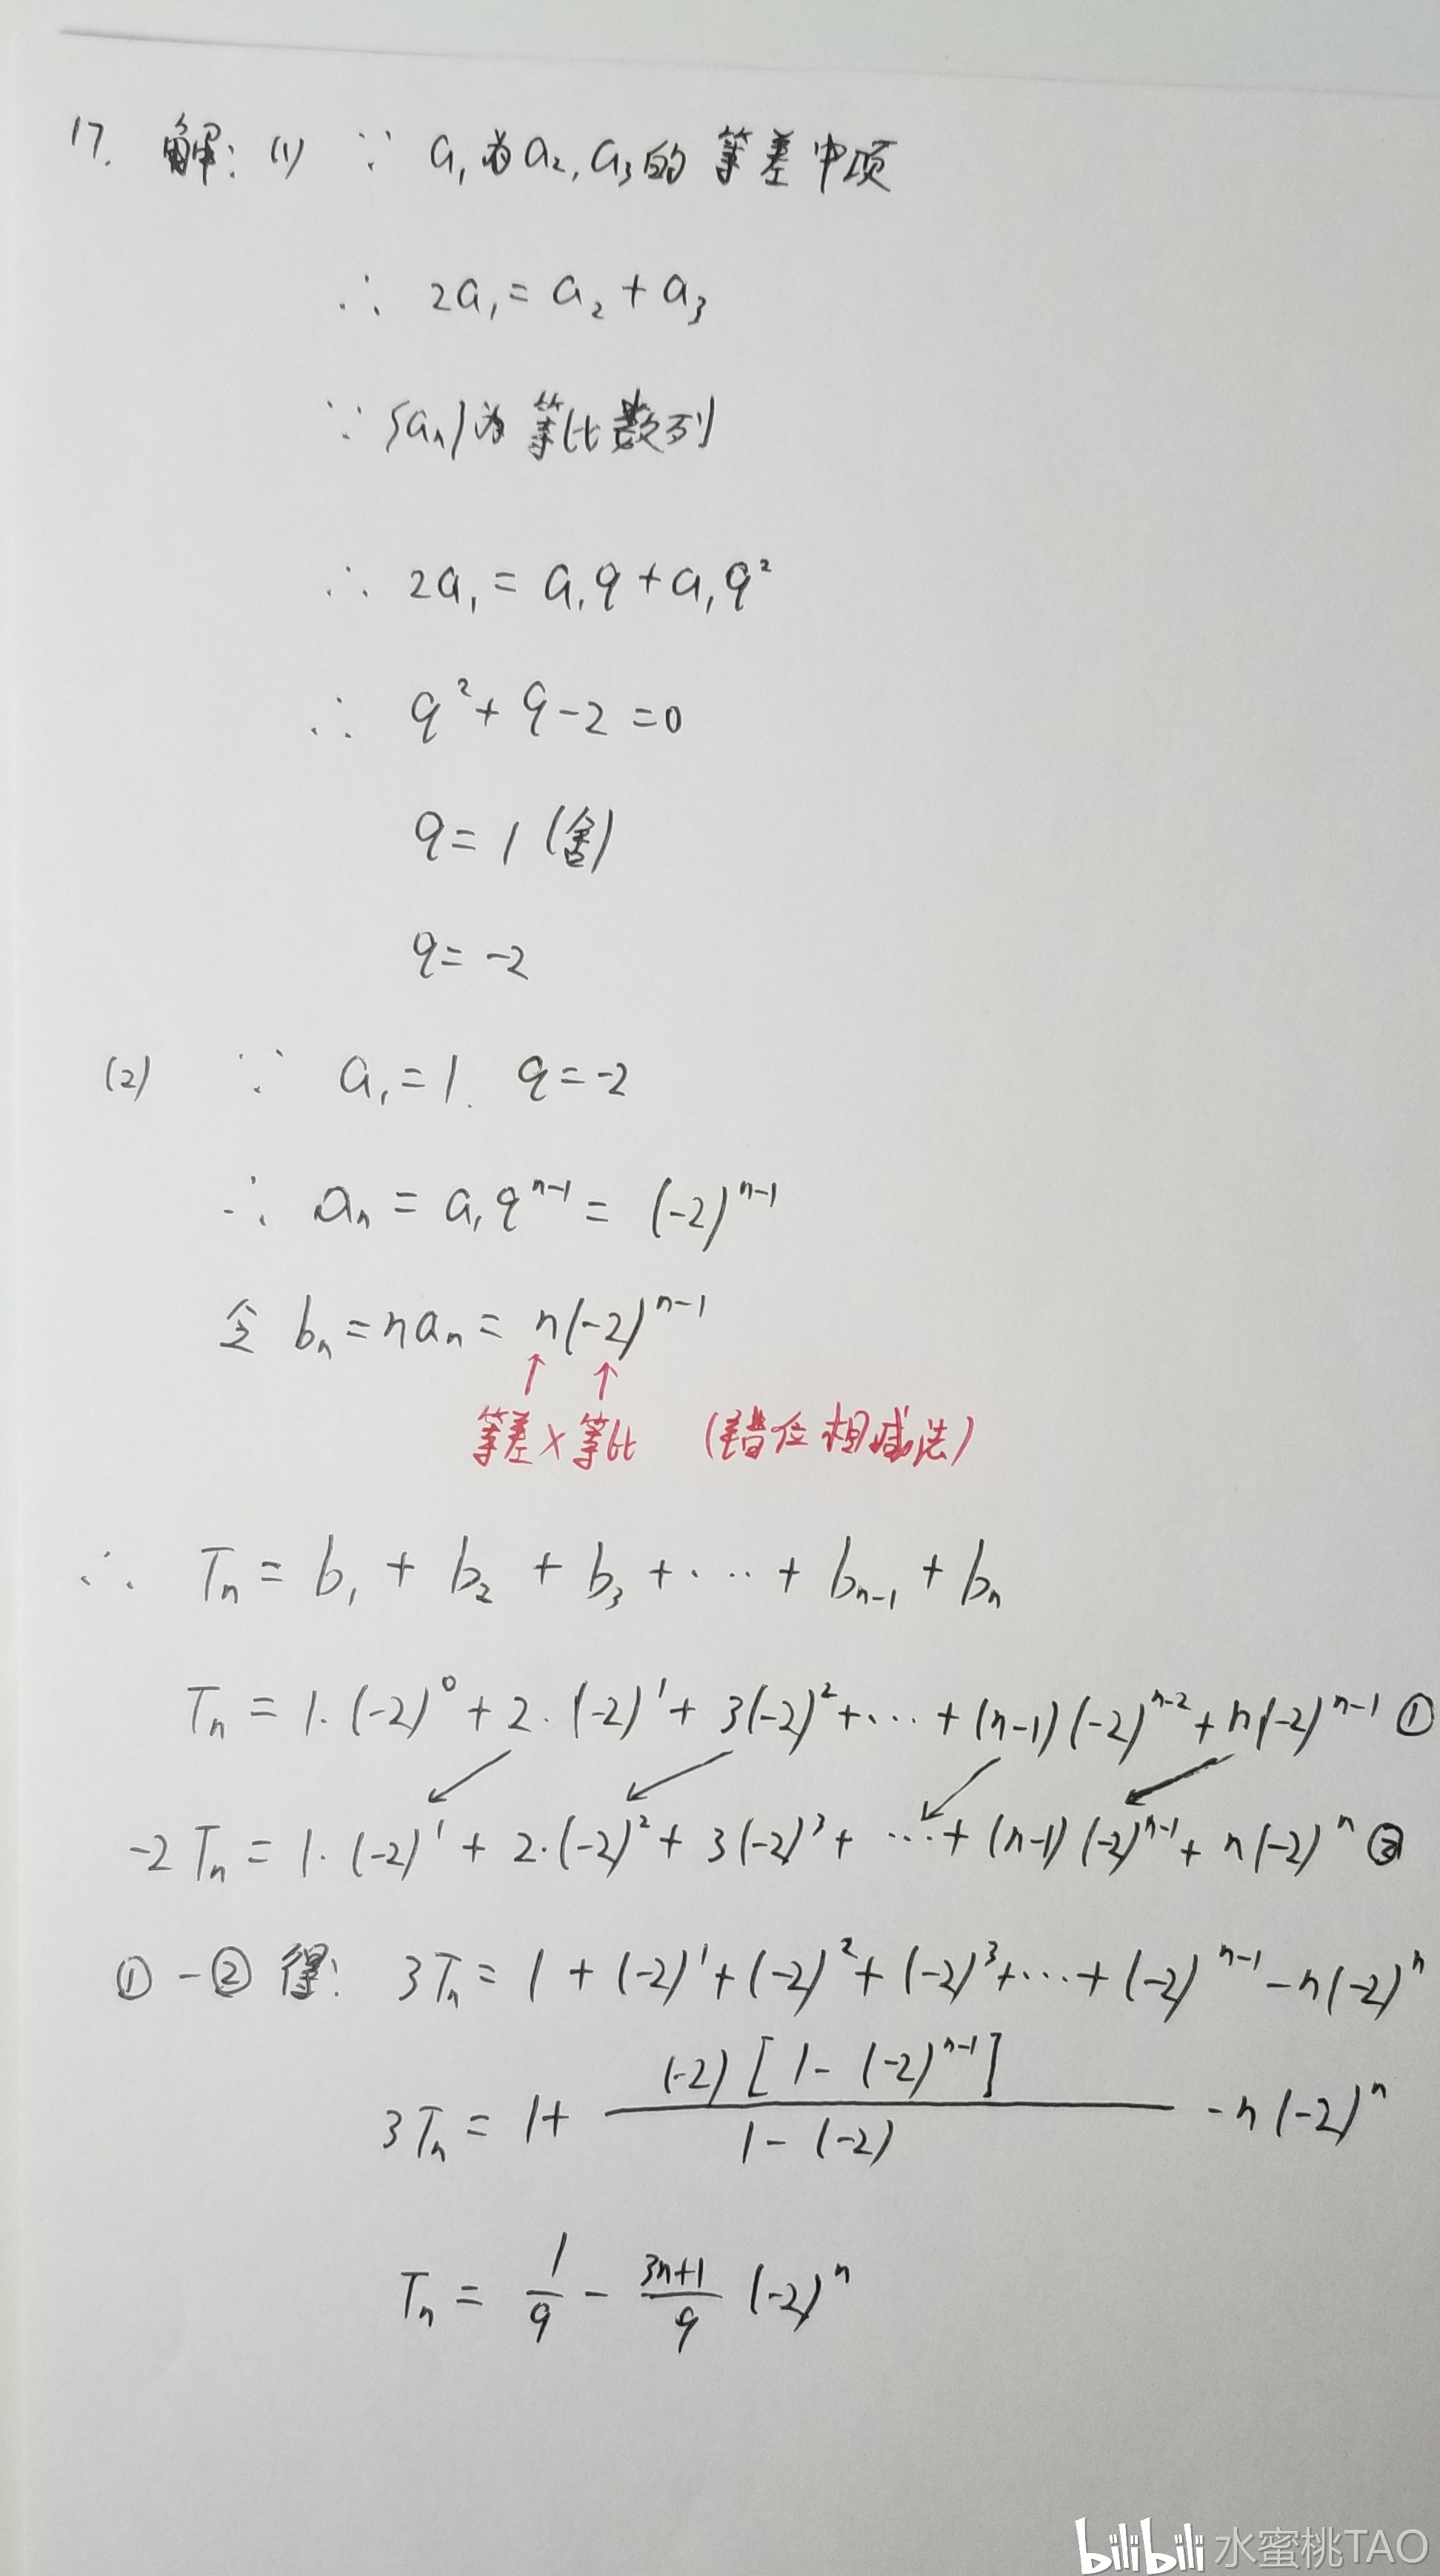 17. 解: (1) ∵ a₁为a₂,a₃的等差中项
∴ 2a₁ = a₂ + a₃
∵ {aₙ}为等比数列
∴ 2a₁ = a₁q + a₁q²
∴ q² + q - 2 = 0
q = 1 (舍)
q = -2
(2) ∵ a₁ = 1. q = -2
∴ aₙ = a₁qⁿ⁻¹ = (-2)ⁿ⁻¹
令 bₙ = naₙ = n(-2)ⁿ⁻¹
↑ ↑
等差×等比 (错位相减法)
∴ Tₙ = b₁ + b₂ + b₃ + ··· + bₙ₋₁ + bₙ
Tₙ = 1·(-2)⁰ + 2·(-2)¹ + 3(-2)² + ··· + (n-1)(-2)ⁿ⁻² + n(-2)ⁿ⁻¹ ①
-2Tₙ = 1·(-2)¹ + 2·(-2)² + 3(-2)³ + ··· + (n-1)(-2)ⁿ⁻¹ + n(-2)ⁿ ②
① - ② 得: 3Tₙ = 1 + (-2)¹ + (-2)² + (-2)³ + ··· + (-2)ⁿ⁻¹ - n(-2)ⁿ
3Tₙ = 1 + (-2)[1-(-2)ⁿ⁻¹] / 1-(-2) - n(-2)ⁿ
Tₙ = 1/9 - 3n+1/9 (-2)ⁿ
bilibili 水蜜桃TAO